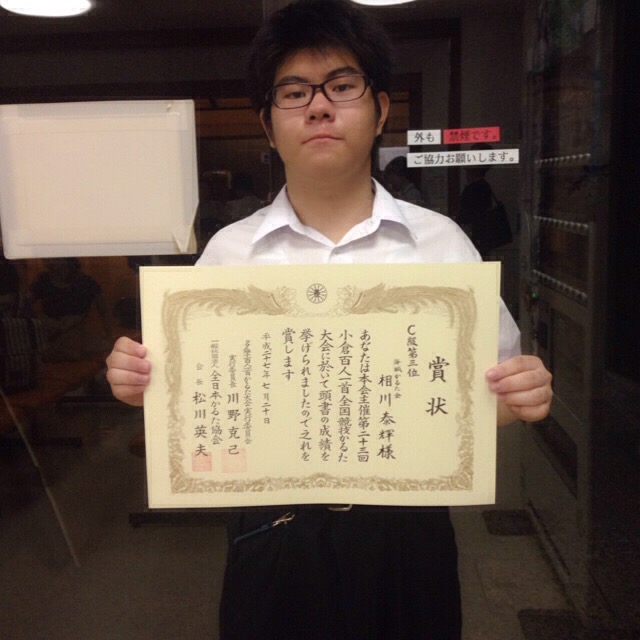 外も 禁煙です。
ご協力お願いします。
賞状
C級第三位
相川泰輝様
あなたは本会主催第二十三回
小倉百人一首全国競技かるた
大会に於いて頭書の成績を
挙げられましたので之れを
賞します
平成二十七年七月二十日
実行委員長 川野克己
一般社団法人 全日本かるた協会
会長 松川英夫